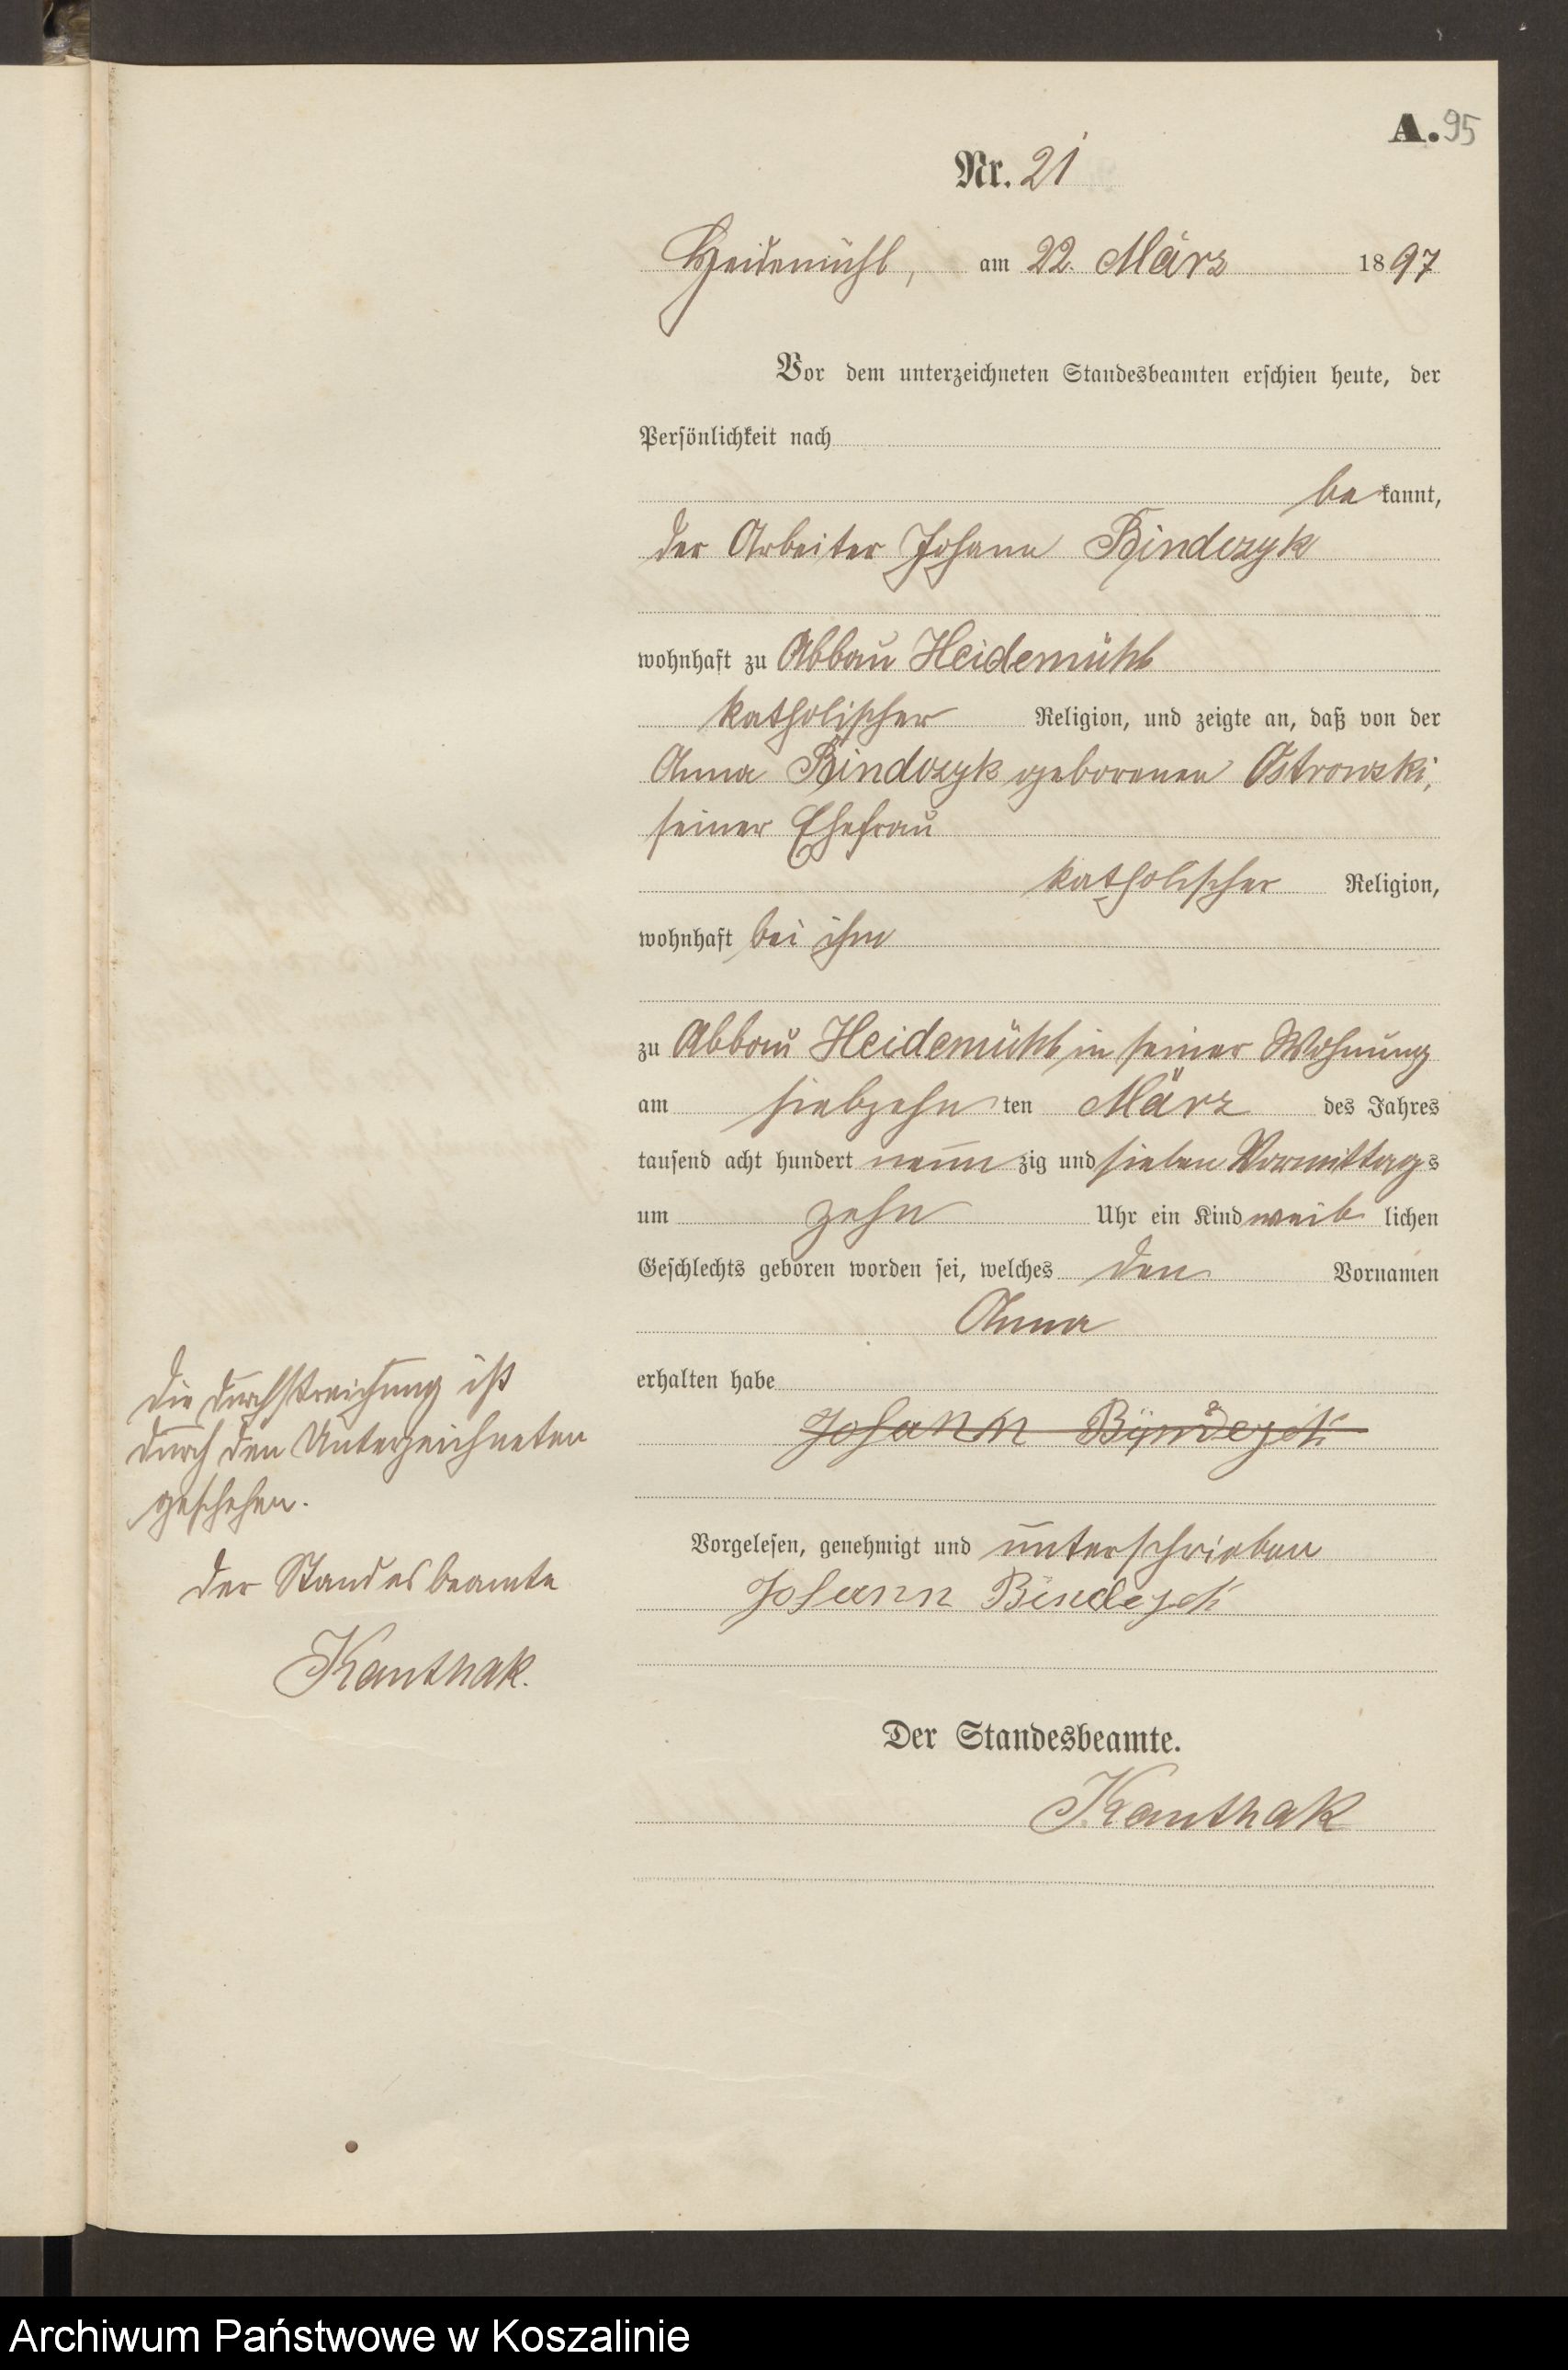 A. 95
Nr. 21
Heidemühl, am 22. März 1897
Vor dem unterzeichneten Standesbeamten erschien heute, der
Persönlichkeit nach
be kannt,
der Arbeiter Johann Bindczyk
wohnhaft zu Abbau Heidemühl
katholischer Religion, und zeigte an, daß von der
Anna Bindczyk geborenen Ostrowski,
seiner Ehefrau
katholischer Religion,
wohnhaft bei ihm
zu Abbau Heidemühl in seiner Wohnung
am siebzehn ten März des Jahres
tausend acht hundert neun zig und sieben Vormittags
um zehn Uhr ein Kind weib lichen
Geschlechts geboren worden sei, welches den Vornamen
Anna
erhalten habe
Johann
Die Durchstreichung ist
durch den Unterzeichneten
geschehen.
Der Standesbeamte
Kanthak.
Vorgelesen, genehmigt und unterschrieben
Johann
Der Standesbeamte.
Kanthak
Archiwum Państwowe w Koszalinie